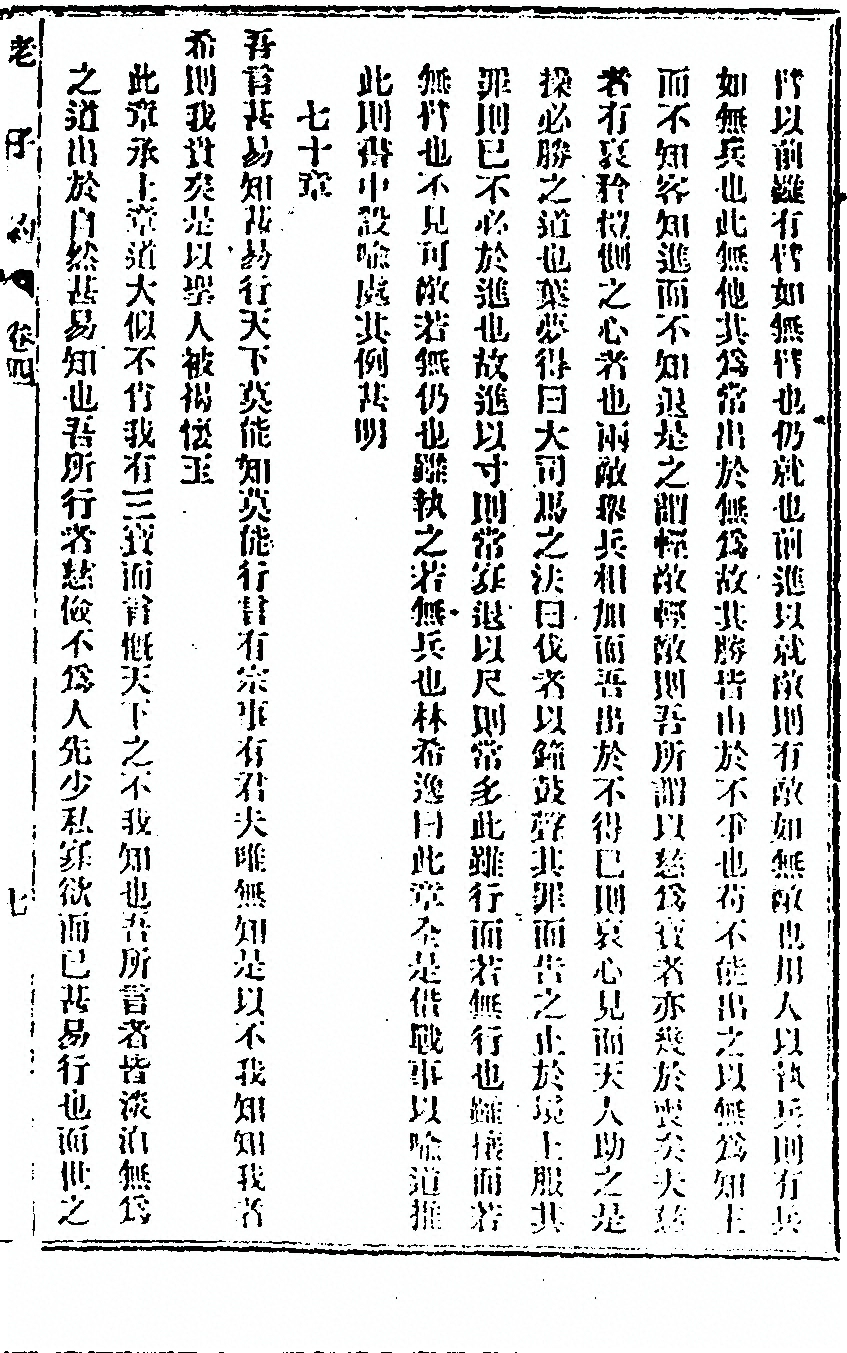 臂以前雖有臂如無臂也仍就也前進以就敵則有敵如無敵也用人以執兵則有兵
如無兵也此無他其為常出於無為故其勝皆由於不爭也苟不能出之以無為知主
而不知客知進而不知退是之謂輕敵輕敵則吾所謂以慈為寶者亦幾於喪矣夫慈
者有哀矜惻之心者也兩敵舉兵相加而吾出於不得已則哀心見而天人助之是
操必勝之道也葉夢得曰大司馬之法曰伐者以鐘鼓聲其罪而告之止於境上服其
罪則已不必於進也故進以寸則常寡退以尺則常多此雖行而若無行也雖攘而若
無臂也不見可敵若無仍也雖執之若無兵也林希逸曰此章全是借戰事以喻道推
此則書中設喻處其例甚明
七十章
吾言甚易知甚易行天下莫能知莫能行言有宗事有君夫唯無知是以不我知知我者
希則我貴矣是以聖人被褐懷玉
此章承上章道大似不肖我有三寶而言慨天下之不我知也吾所言者皆淡泊無為
之道出於自然甚易知也吾所行者慈儉不為人先少私寡欲而已甚易行也而世之
老子 卷四
七